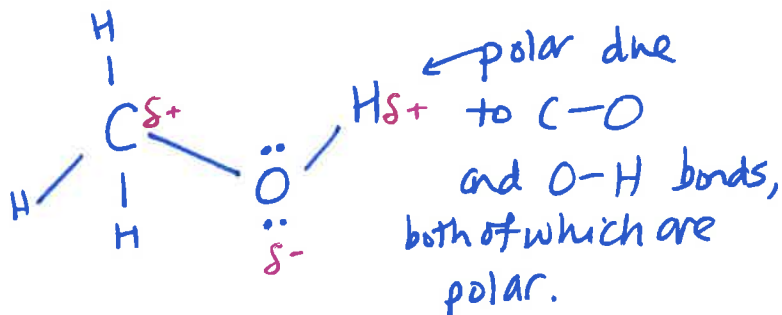 H
C δ+
H δ+
H
H
O
δ-
polar due
to C-O
and O-H bonds,
both of which are
polar.